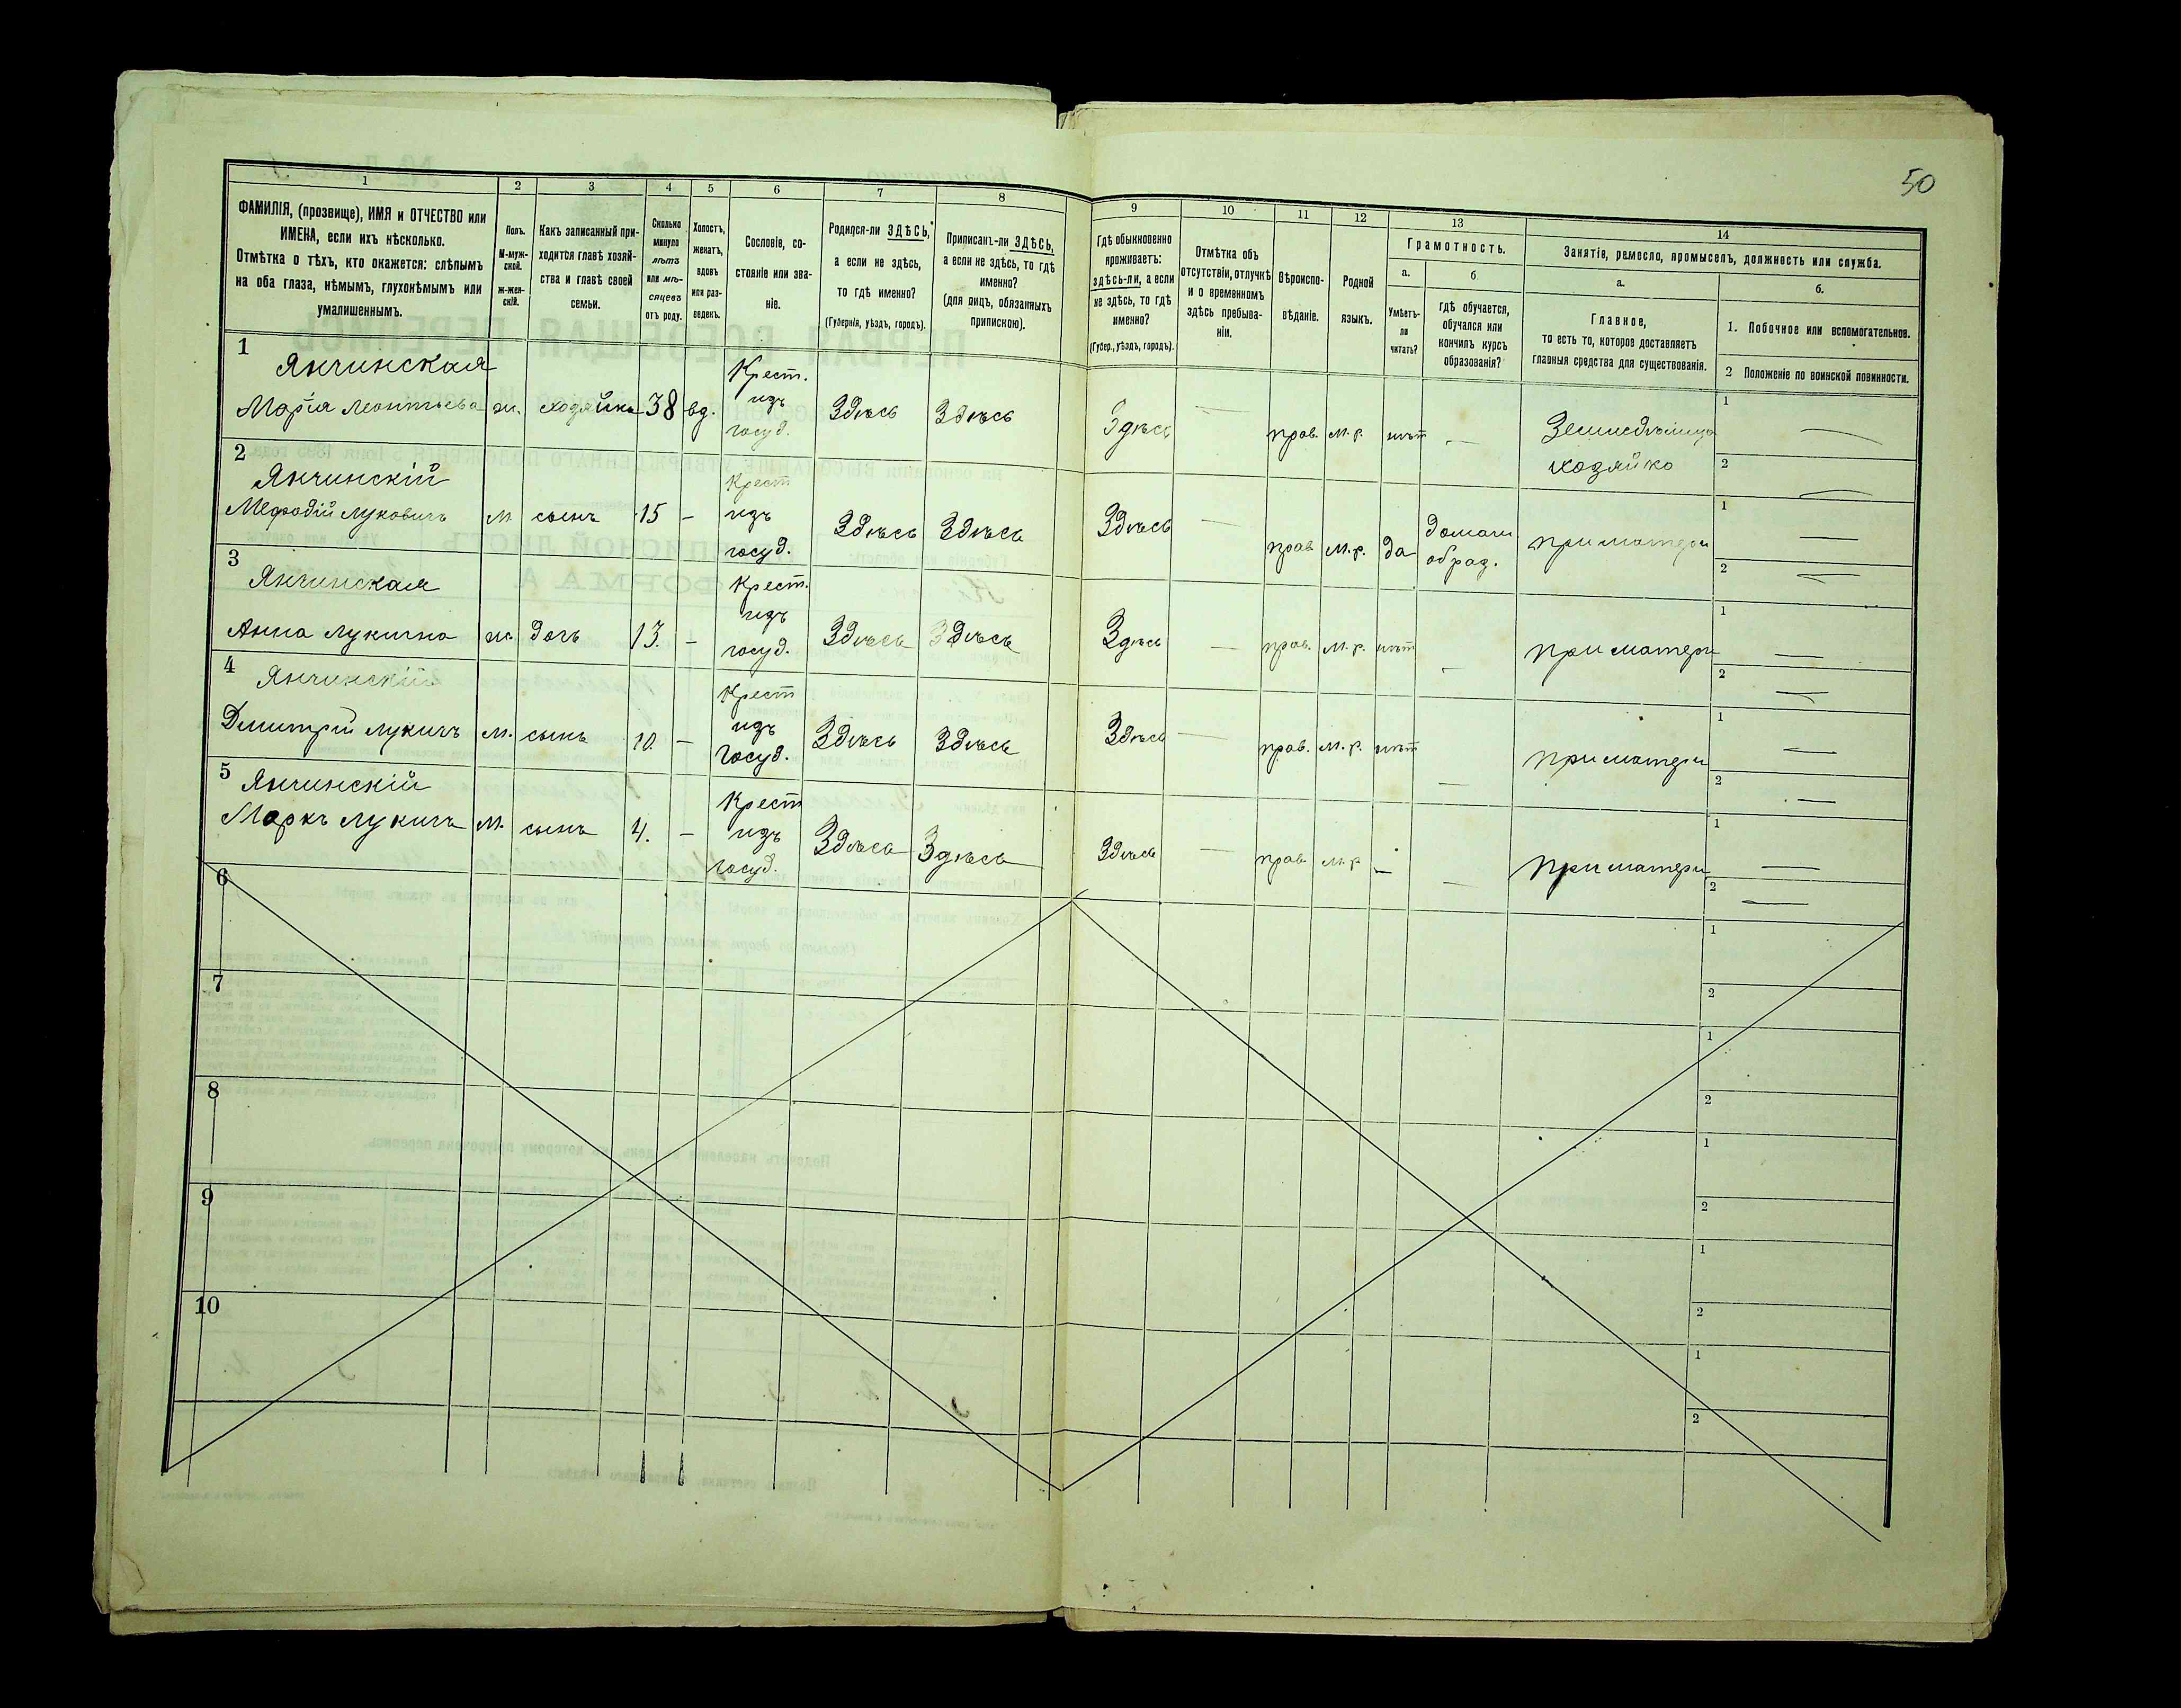 50
1 2 3 4 5 6 7 8 9 10 11 12 13 14
ФАМИЛІЯ, (прозвище), ИМЯ и ОТЧЕСТВО или
ИМЕНА, если ихъ нѣсколько.
Отмѣтка о тѣхъ, кто окажется: слѣпымъ
на оба глаза, нѣмымъ, глухонѣмымъ или
умалишеннымъ.
Полъ.
М-муж-
ской.
ж-жен-
скій.
Какъ записанный при-
ходится главѣ хозяй-
ства и главѣ своей
семьи.
Сколько
минуло
лѣтъ
или мѣ-
сяцевъ
отъ роду.
Холостъ,
женатъ,
вдовъ
или раз-
веденъ.
Сословіе, со-
стояніе или зва-
ніе.
Родился-ли ЗДѢСЬ,
а если не здѣсь,
то гдѣ именно?
(Губернія, уѣздъ, городъ).
Приписанъ-ли ЗДѢСЬ,
а если не здѣсь, то гдѣ
именно?
(для лицъ, обязанныхъ
припискою).
Гдѣ обыкновенно
проживаетъ:
здѣсь-ли, а если
не здѣсь, то гдѣ
именно?
(Губер., уѣздъ, городъ).
Отмѣтка объ
отсутствіи, отлучкѣ
и о временномъ
здѣсь пребыва-
ніи.
Вѣроиспо-
вѣданіе.
Родной
языкъ.
Грамотность.
а.
Умѣетъ-
ли
читать?
б
гдѣ обучается,
обучался или
кончилъ курсъ
образованія?
Занятіе, ремесло, промыселъ, должность или служба.
а.
Главное,
то есть то, которое доставляетъ
главныя средства для существованія.
б.
1. Побочное или вспомогательное.
2 Положеніе по воинской повинности.
1 Янчинская
Марія Леонтьева ж. хозяйка 38 вд. Крест. изъ госуд. Здѣсь Здѣсь Здѣсь — прав. м.р. нѣтъ — Земледѣлица хозяйка 1 — 2 —
2 Янчинскій
Мефодій Луковичъ м. сынъ 15 — Крест изъ госуд. Здѣсь Здѣсь Здѣсь — прав м.р. да домаш образ. при матери 1 — 2 —
3 Янчинская
Анна Лукична ж. дочь 13. — Крест. изъ госуд. Здѣсь Здѣсь Здѣсь — прав. м.р. нѣтъ — при матери 1 — 2 —
4 Янчинскій
Дмитрій Лукичъ м. сынъ 10. — Крест изъ госуд. Здѣсь Здѣсь Здѣсь — прав. м.р. нѣтъ — при матери 1 — 2 —
5 Янчинскій
Маркъ Лукичъ м. сынъ 4. — Крест изъ госуд. Здѣсь Здѣсь Здѣсь — прав м.р — — при матери 1 — 2 —
6 1 2
7 1 2
8 1 2
9 1 2
10 1 2